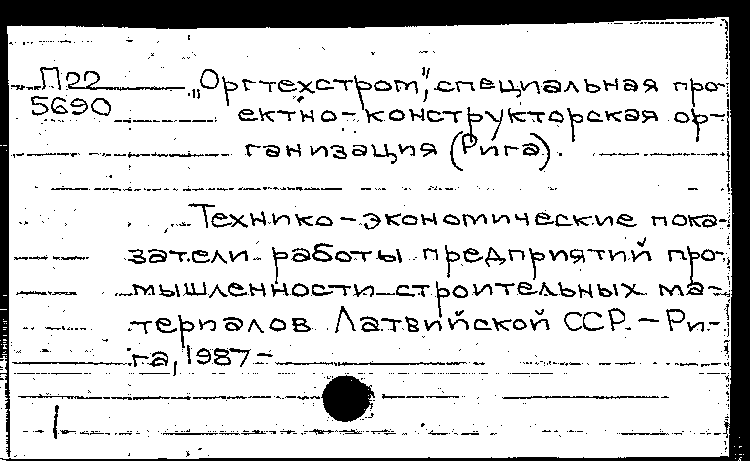 П22 „Оргтехстром", специальная про-
5690 ектно-конструкторская ор-
ганизация (Рига).
Технико-экономические пока-
затели работы предприятий про-
мышленности строительных ма-
териалов Латвийской ССР. – Ри-
га, 1987 –